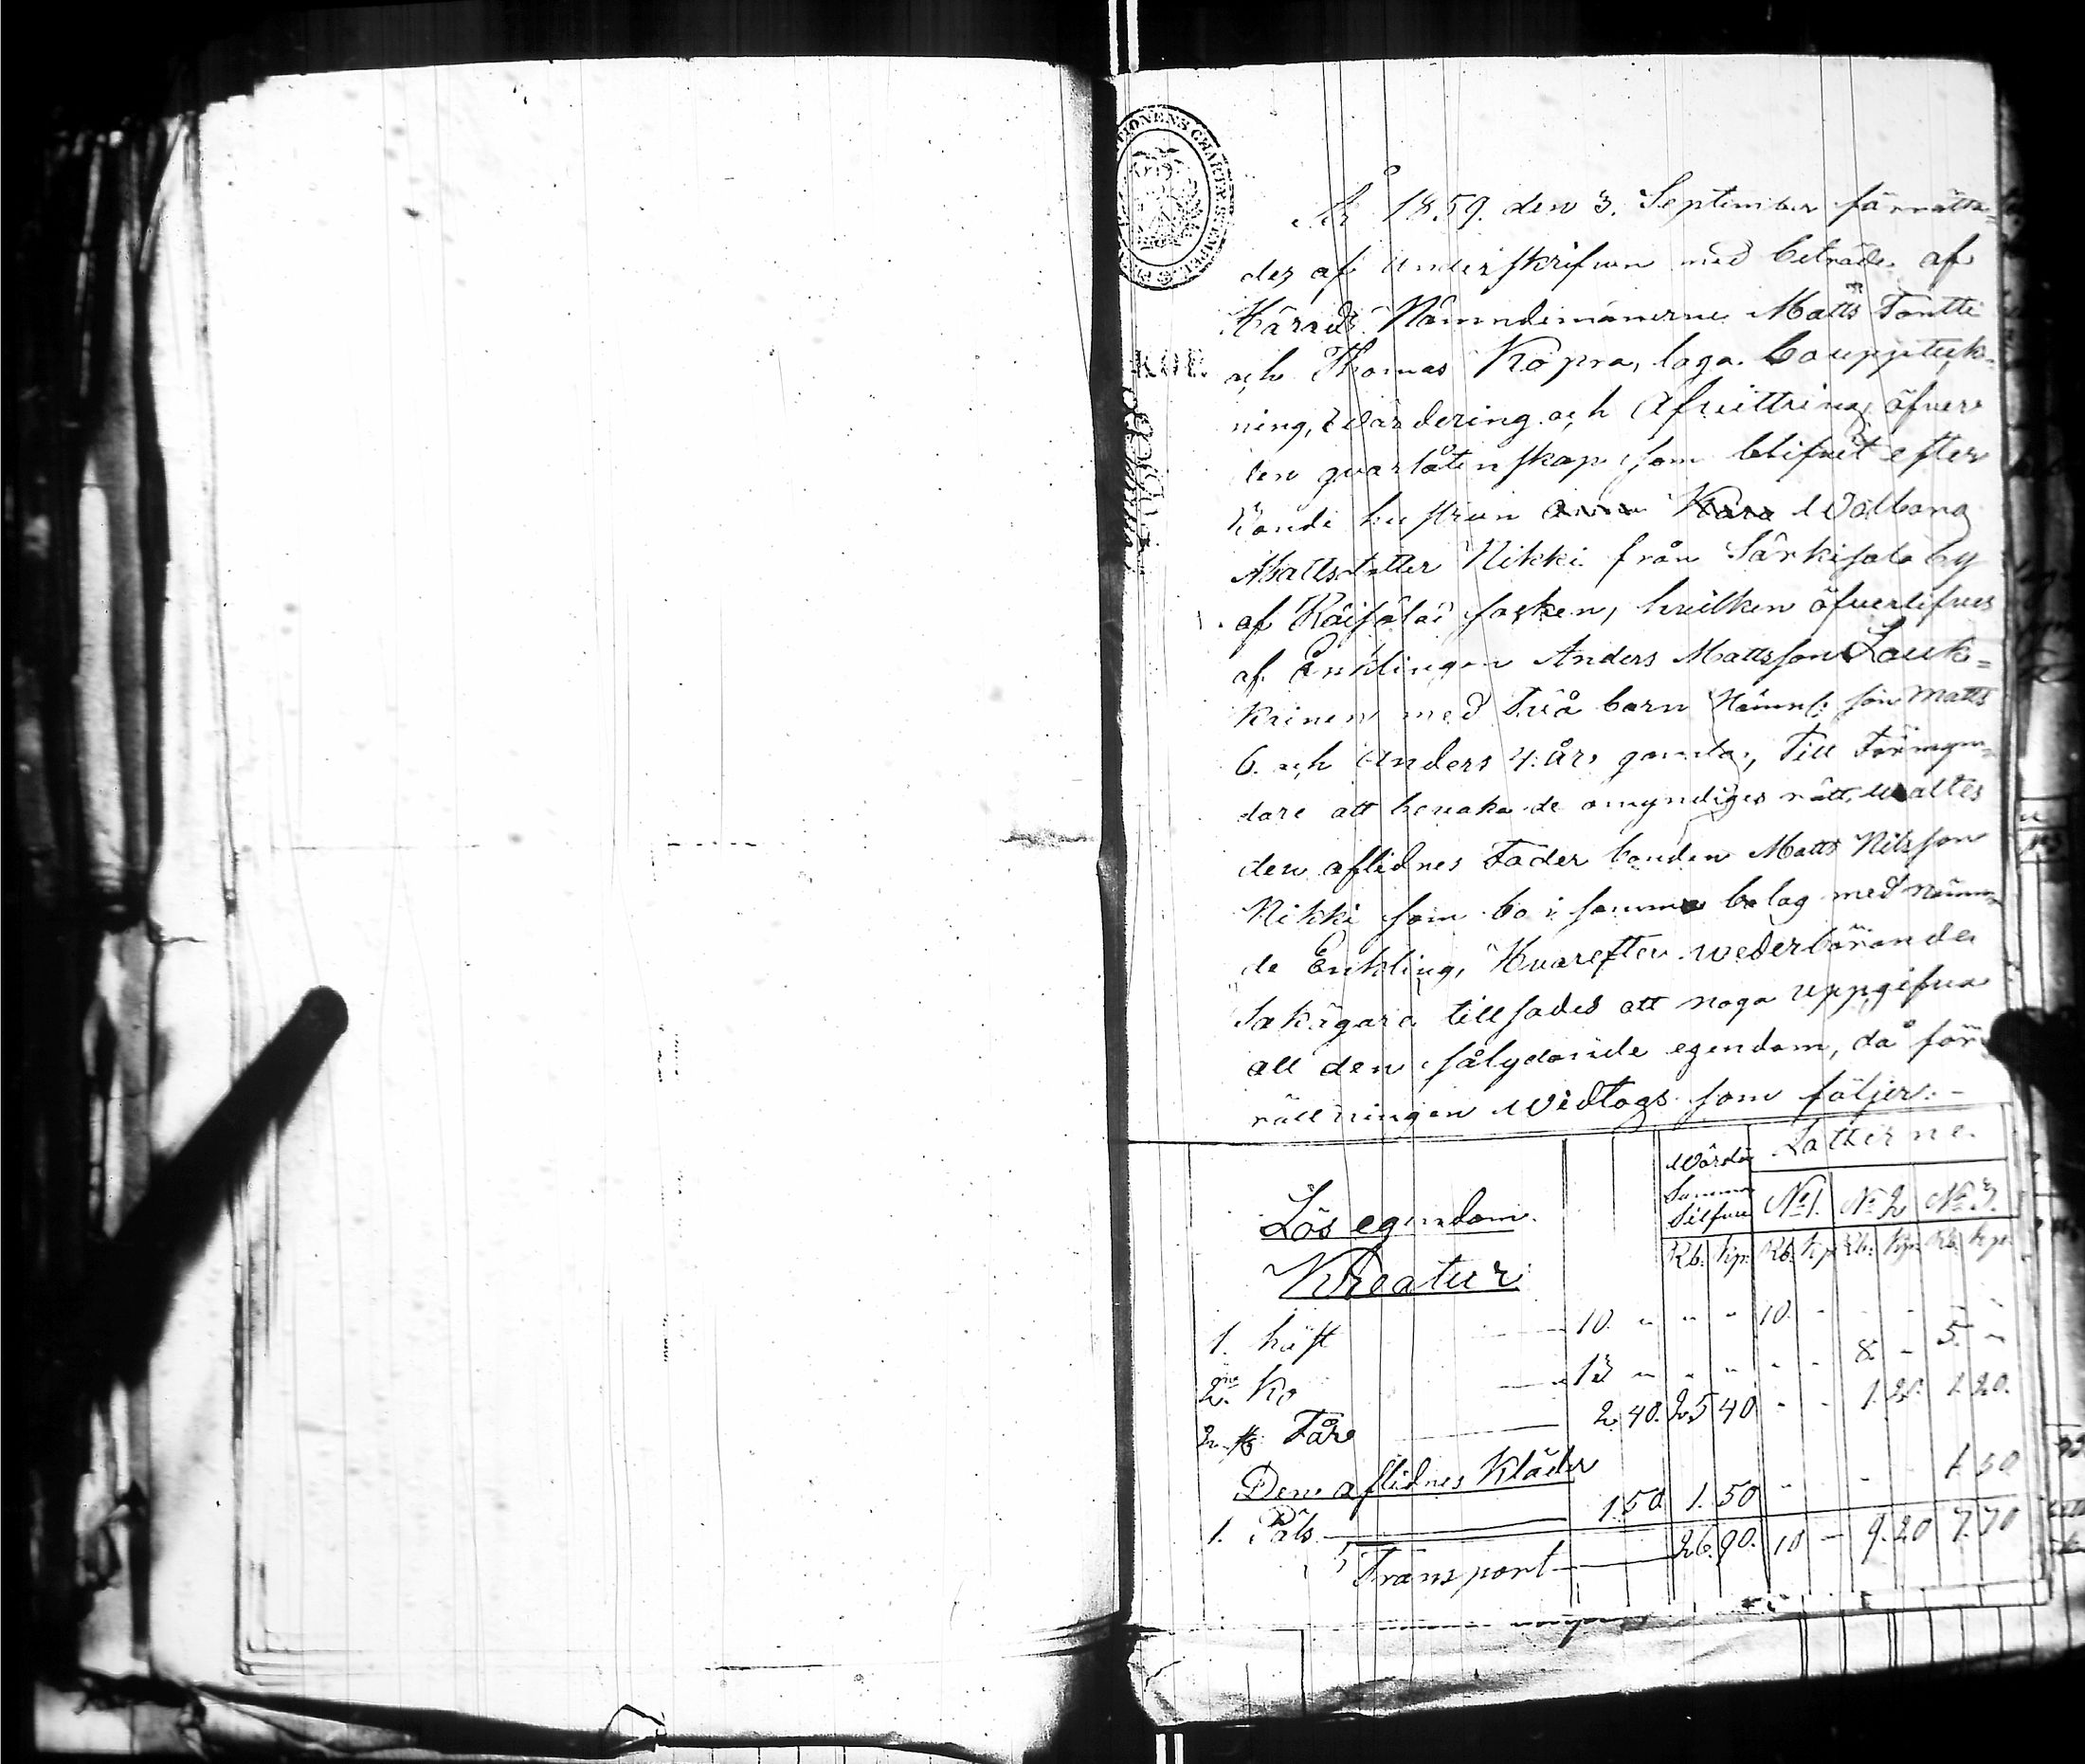 År 1859. den 3. September förrätta-
des af Underskrifven med biträde af
Härads Nämndemännerne Matts Tontti
och Thomas Kopra, laga bouppteck-
ning, Wärdering och Afvittring öfver
den qvarlåtenskap som blifvit efter
bonde hustrun Walborg
Mattsdotter Nikki från Särkisalo by
af Räisälä socken, hvilken öfverlifves
af Enklingen Anders Mattsson Louk-
kinen med Två barn Nämnl: son Matts
6. och Anders 4. års gamla, Till Förmyn-
dare att bevaka de omyndiges rätt, Waltes
den aflidnes Fader bonden Matts Nilsson
Nikki som bo i samma bolag med nämn-
de Enkling, Hvarefter wederbörande
Sakägare tillsades att noga uppgifva
all den sålydande egendom, då för-
rättningen Widtogs som följer:-
Wärde Lotterne.
Summa
Silfver No 1. No 2 No 3.
Lös egendom.
Rb. Kp. Rb. Kp. Rb. Kp. Rb. Kp.
Kreatur
1. häst 10. " " " 10. - - - - -
2. Ko 13 " " " - - 8 - 5. "
2. Får 2 40. 25 40 - - 1.20. 1.20.
Den aflidnes Kläder
1. Päls 1 50 1. 50 - - - 1.50
Transport 26.90. 10 - 9.20 7.70